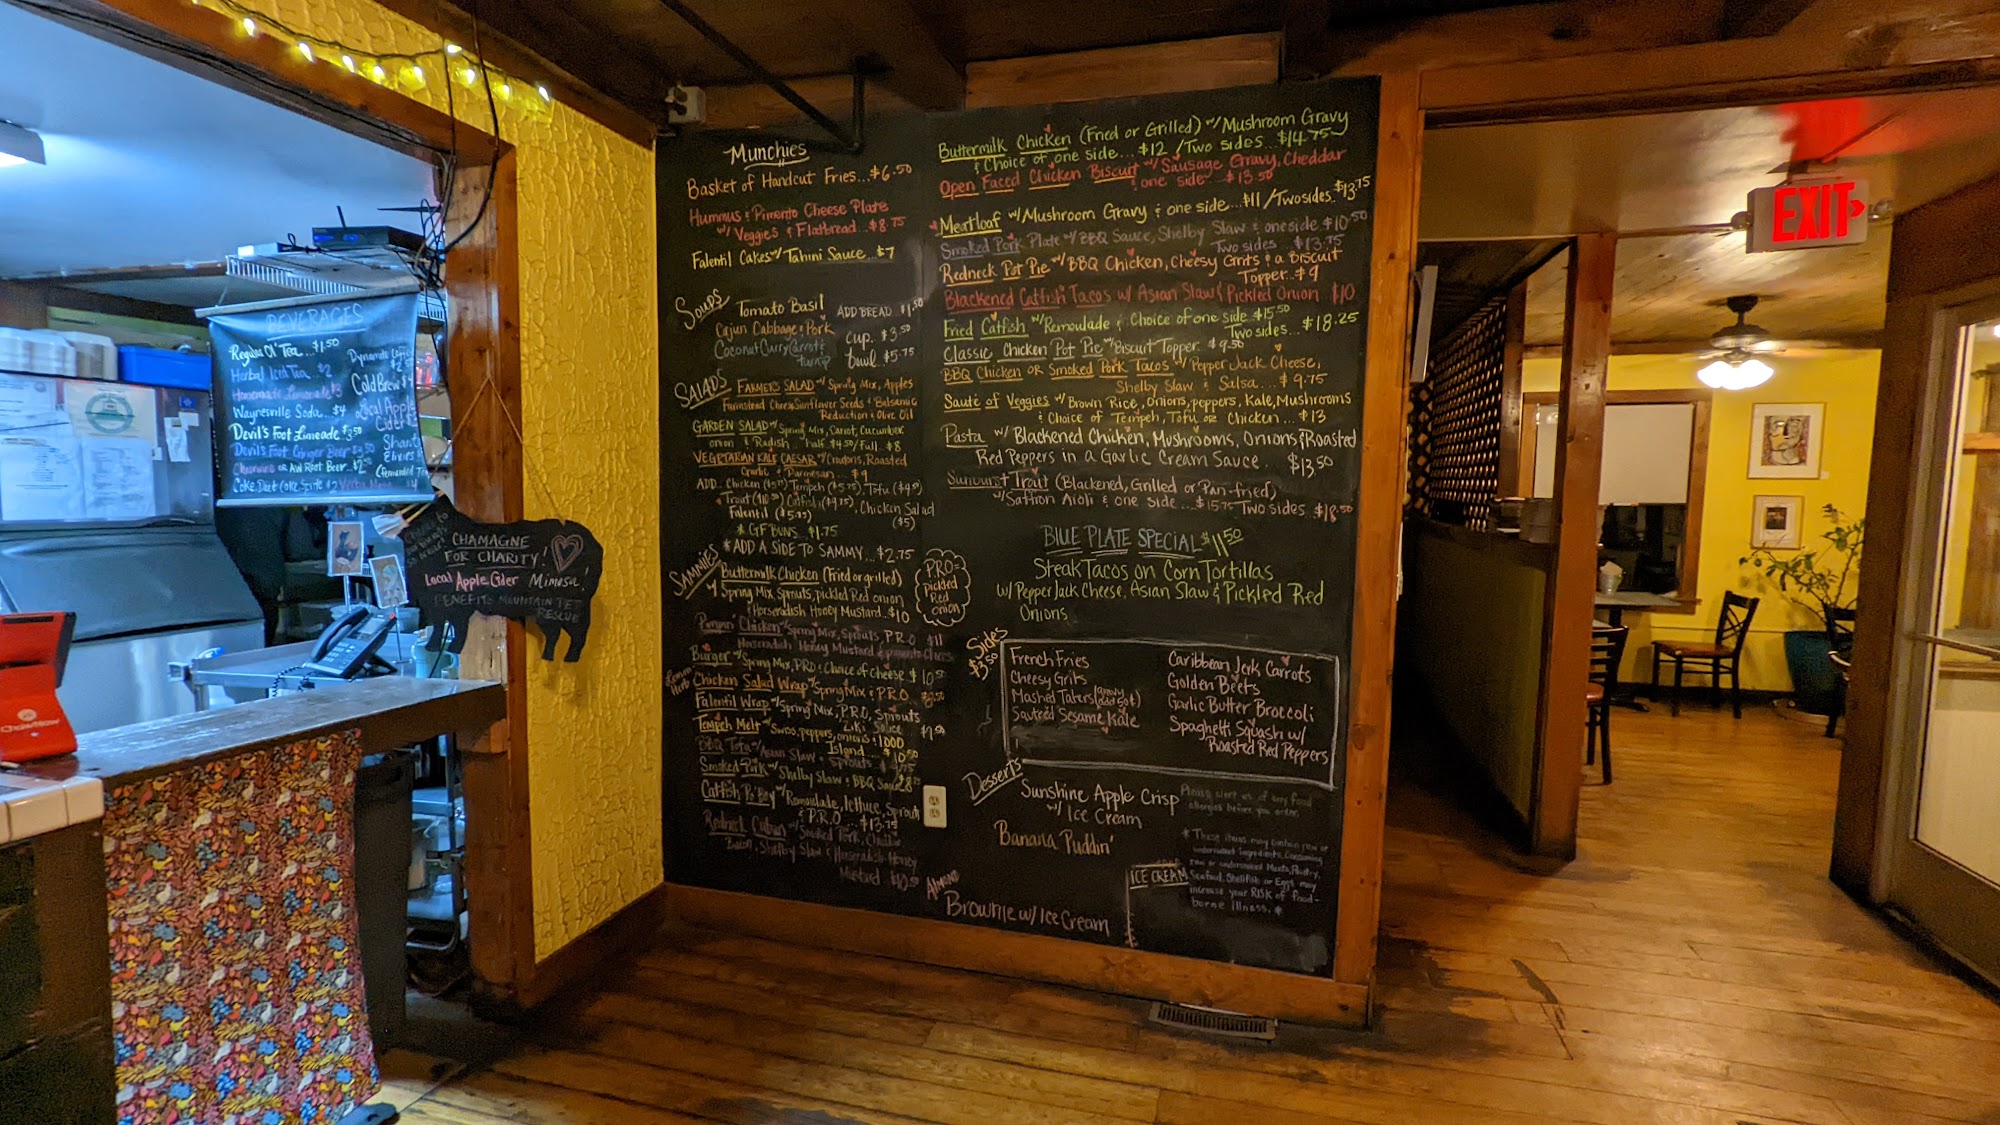 BEVERAGES
Regular Ol' Tea...$1.50
Herbal Iced Tea $2
Homemade Lemonade $3
Waynesville Soda...$4
Devil's Foot Limeade $3.50
Devil's Foot Ginger Beer $3.50
Cheerwine or AW Root Beer...$2.50
Coke, Diet Coke, Sprite $2
Cold Brew $4
Local Apple
Cider
CHAMAGNE
FOR CHARITY!
Local Apple Cider Mimosa!
BENEFITS MOUNTAIN PET
RESCUE
Munchies
Basket of Handcut Fries...$6.50
Hummus & Pimento Cheese Plate
w/ Veggies & Flatbread...$8.75
Falentil Cakes w/ Tahini Sauce...$7
Soups
Tomato Basil ADD BREAD $1.50
Cajun Cabbage & Pork cup. $3.50
Coconut Curry Carrot & turnip bowl $5.75
SALADS
FARMER'S SALAD w/ Spring Mix, Apples
Farmstead Cheese, Sunflower Seeds & Balsamic
Reduction & Olive Oil
GARDEN SALAD w/ Spring Mix, Carrot, Cucumber
onion & Radish...half $4.50/Full..$8
VEGETARIAN KALE CAESAR w/ Croutons, Roasted
Garlic & Parmesan $9
ADD...Chicken ($5.75) Tempeh ($5.75), Tofu ($4.50)
Falentil ($5.75) Chicken Salad
($5)
* GF BUNS...$1.75
* ADD A SIDE TO SAMMY...$2.75
SAMMIES
Buttermilk Chicken (Fried or grilled)
w/ Spring Mix, Sprouts, pickled Red onion
& Horseradish Honey Mustard..$10
P.R.O =
pickled
Red
onion
Pimpin' Chicken w/ Spring Mix, Sprouts, P.R.O $11
Horseradish Honey Mustard & pimento Cheese
Burger w/ Spring Mix, PRO & Choice of cheese $10.50
Lemon Herb
Chicken Salad Wrap w/ Spring Mix & P.R.O
Falentil Wrap w/ Spring Mix, P.R.O, Sprouts
Tempeh Melt w/ Swiss, peppers, onions & 1000
Island...$10.50
BBQ Tofu w/ Asian Slaw & Sprouts
Smoked Pork w/ Shelby Slaw & BBQ Sauce
Catfish Po'Boy w/ Remoulade, lettuce, Sprouts
& P.R.O...$13.75
Redneck Cuban w/ Smoked Pork, Cheddar
Bacon, Shelby Slaw & Horseradish Honey
Mustard $10.50
Buttermilk Chicken (Fried or Grilled) w/ Mushroom Gravy
& Choice of one side...$12 /Two sides...$14.75
Open Faced Chicken Biscuit w/ Sausage Gravy, Cheddar
& one side...$13.50
Meatloaf w/ Mushroom Gravy & one side...$11/Two sides..$13.75
Smoked Pork Plate w/ BBQ Sauce, Shelby Slaw & one side $10.50
Two sides...$13.75
Redneck Pot Pie w/ BBQ Chicken, Cheesy Grits & a Biscuit
Topper..$9
Blackened Catfish Tacos w/ Asian Slaw & Pickled Onion $10
Fried Catfish w/ Remoulade & Choice of one side $15.50
Two sides...$18.25
Classic Chicken Pot Pie w/ Biscuit Topper $9.50
BBQ Chicken OR Smoked Pork Tacos w/ Pepper Jack Cheese,
Shelby Slaw & Salsa...$9.75
Sauté of Veggies w/ Brown Rice, Onions, peppers, Kale, Mushrooms
& Choice of Tempeh, Tofu or Chicken...$13
Pasta w/ Blackened Chicken, Mushrooms, Onions & Roasted
Red Peppers in a Garlic Cream Sauce. $13.50
Sunburst Trout (Blackened, Grilled or Pan-fried)
w/ Saffron Aioli & one side...$15.75 Two sides...$18.50
BLUE PLATE SPECIAL $11.50
Steak Tacos on Corn Tortillas
w/ Pepper Jack Cheese, Asian Slaw & Pickled Red
Onions
Sides
$3.50
French Fries
Cheesy Grits
Mashed Taters (gravy add 50¢)
Sautéed Sesame Kale
Caribbean Jerk Carrots
Golden Beets
Garlic Butter Broccoli
Spaghetti Squash w/
Roasted Red Peppers
Desserts
Sunshine Apple Crisp
w/ Ice Cream
Banana Puddin'
Almond
Brownie w/ Ice Cream
ICE CREAM
Please alert us of any food
allergies before you order.
* These items may contain raw or
undercooked Ingredients. Consuming
raw or undercooked Meats, Poultry,
Seafood, Shellfish or Eggs may
increase your RISK of food-
borne illness. *
EXIT